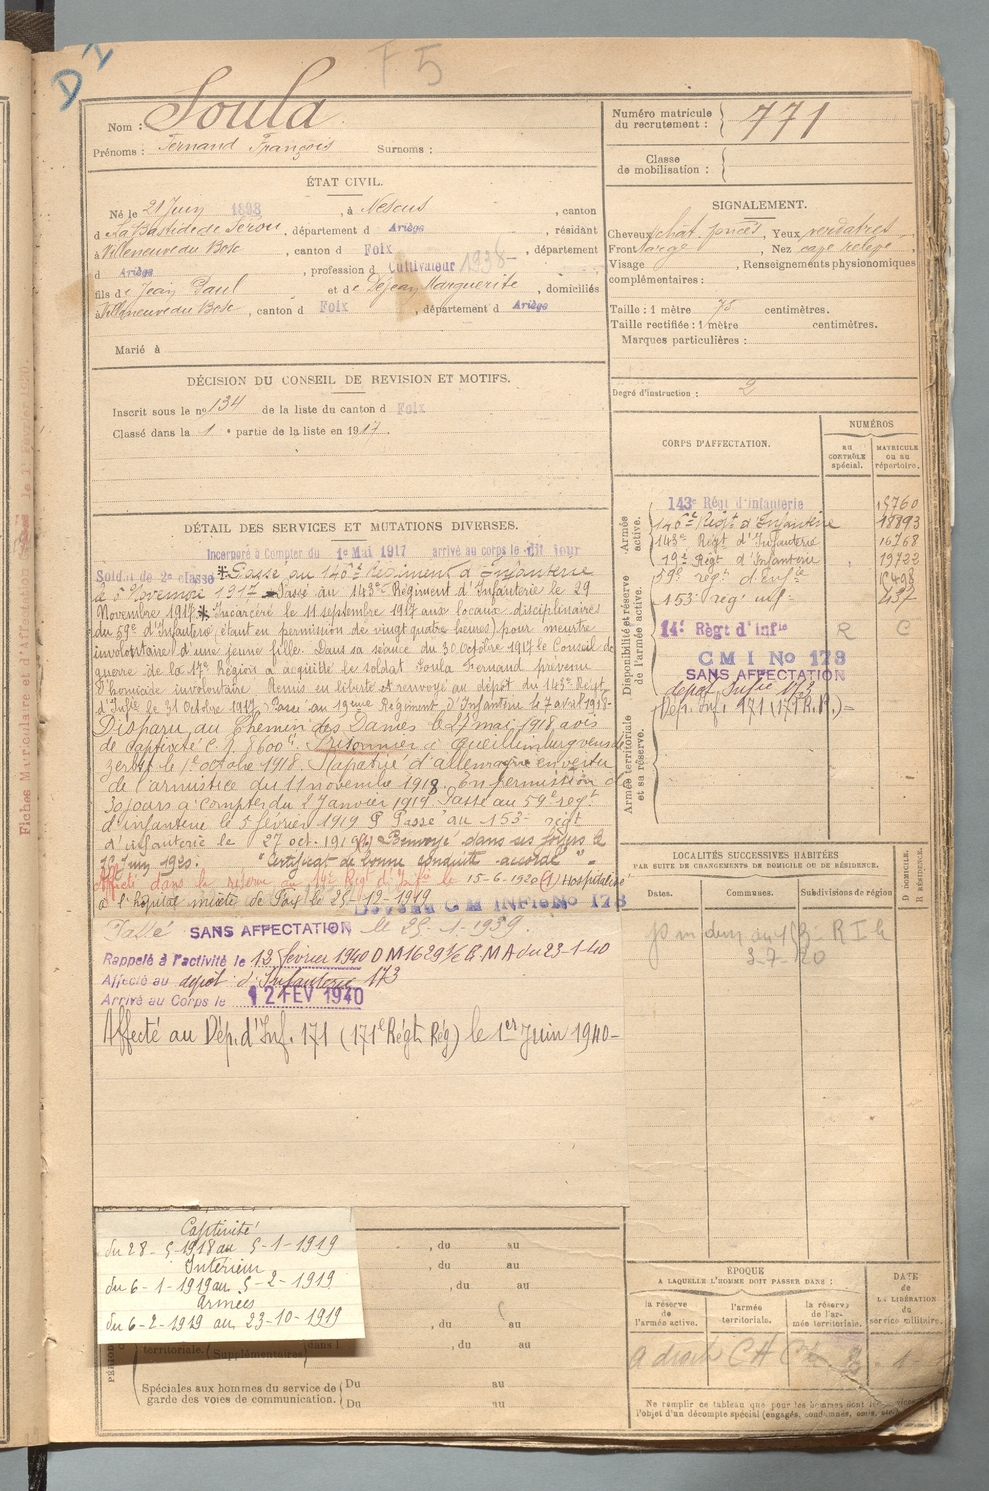 D'1
F 5
Nom : Soula
Prénoms : Fernand François Surnoms :
Numéro matricule du recrutement : 771
Classe de mobilisation :
ÉTAT CIVIL.
Né le 21 Juin 1898, à Nescus, canton
d La Bastide de Sérou, département d Ariège, résidant
à Villeneuve du Bosc, canton d Foix, département
d Ariège, profession d Cultivateur 1938-
fils de Jean Paul et de Dejean Marguerite, domiciliés
à Villeneuve du Bosc, canton d Foix, département d Ariège
Marié à
SIGNALEMENT.
Cheveux chat. foncés, Yeux verdatres,
Front large Nez cave relevé,
Visage , Renseignements physionomiques
complémentaires :
Taille : 1 mètre 75 centimètres.
Taille rectifiée : 1 mètre centimètres.
Marques particulières :
Degré d'instruction : 2
DÉCISION DU CONSEIL DE REVISION ET MOTIFS.
Inscrit sous le nº 134 de la liste du canton d Foix
Classé dans la 1e partie de la liste en 1917.
CORPS D'AFFECTATION.
NUMÉROS
AU CONTRÔLE spécial.
MATRICULE ou au répertoire.
Armée active.
Disponibilité et réserve de l'armée active.
Armée territoriale et sa réserve.
143e Régt d'infanterie 15760
140e Régt d'Infanterie 18893
143e Régt d'Infanterie 16768
19e Régt d'Infanterie 19722
59e régt d'infie
153e rég' inf-
14e Règt d'Infie R C
C M I No 178
SANS AFFECTATION
dépôt Infie 173
Dép. Inf. 171 (171 R.R.)=
DÉTAIL DES SERVICES ET MUTATIONS DIVERSES.
Incorporé à Compter du 1er Mai 1917 arrivé au corps le dit jour
Soldat de 2e classe * Passé au 140e Régiment d'Infanterie
le 5 Novembre 1917 Passé au 143e Régiment d'Infanterie le 29
Novembre 1917. * Incarcéré le 11 septembre 1917 aux locaux disciplinaires
du 59e d'Infanterie, étant en permission de vingt quatre heures) pour meurtre
involontaire d'une jeune fille. Dans sa séance du 30 octobre 1917 le Conseil de
guerre de la 17e Région a acquitté le soldat Soula Fernand prévenu
d'homicide involontaire. Remis en liberté et renvoyé au dépôt du 143e Régt
d'Infie le 31 Octobre 1917. Passé au 19ème Régiment d'Infanterie le 7 avril 1918-
Disparu au Chemin des Dames le 27 mai 1918 avis
de captivité C. f. 8600. Prisonnier à
le 1er octobre 1918. Rapatrié d'allemagne en vertu
de l'armistice du 11 novembre 1918. En permission de
30 jours à compter du 2 Janvier 1919. Passé au 59e régt
d'infanterie le 5 février 1919 P Passé au 153e régt
d'infanterie le 27 oct. 1919 (1) Renvoyé dans ses foyers le
Juin 1920. "Certificat de bonne conduite accordé" -
Affecté dans la réserve au 14e Régt d'Infie le 15-6-1920 (1) Hospitalisé
à l'hôpital mixte de Foix le 25-12-1919
Devenu C M INFie No 178
Passé SANS AFFECTATION le 25-1-1939.
Rappelé à l'activité le 13 février 1940 D M 1629 1/2 E.M.A du 23-1-40
Affecté au dépôt d'Infanterie 173
Arrivé au Corps le 12 FEV 1940
Affecté au Dép. d'Inf. 171 (171e Régt Rég) le 1er Juin 1940-
LOCALITÉS SUCCESSIVES HABITÉES
PAR SUITE DE CHANGEMENTS DE DOMICILE OU DE RÉSIDENCE.
Dates.
Communes.
Subdivisions de région
D DOMICILE.
R RÉSIDENCE.
153e R I
3-7-20
Captivité
du 28-5-1918 au 5-1-1919
Intérieur
du 6-1-1919 au 5-2-1919
armées
du 6-2-1919 au 23-10-1919
, du au
, du au
, du au
, du au
territoriale. Supplémentaires dans l , du au
Spéciales aux hommes du service de garde des voies de communication. Du au
Du au
ÉPOQUE
A LAQUELLE L'HOMME DOIT PASSER DANS :
la réserve de l'armée active.
l'armée territoriale.
la réserve de l'armée territoriale.
DATE de LA LIBÉRATION du service militaire.
a droit C A C
Ne remplir ce tableau que pour les hommes dont les services
l'objet d'un décompte spécial (engagés, condamnés, omis, etc.
Fiches Matriculaire et d'Affectation